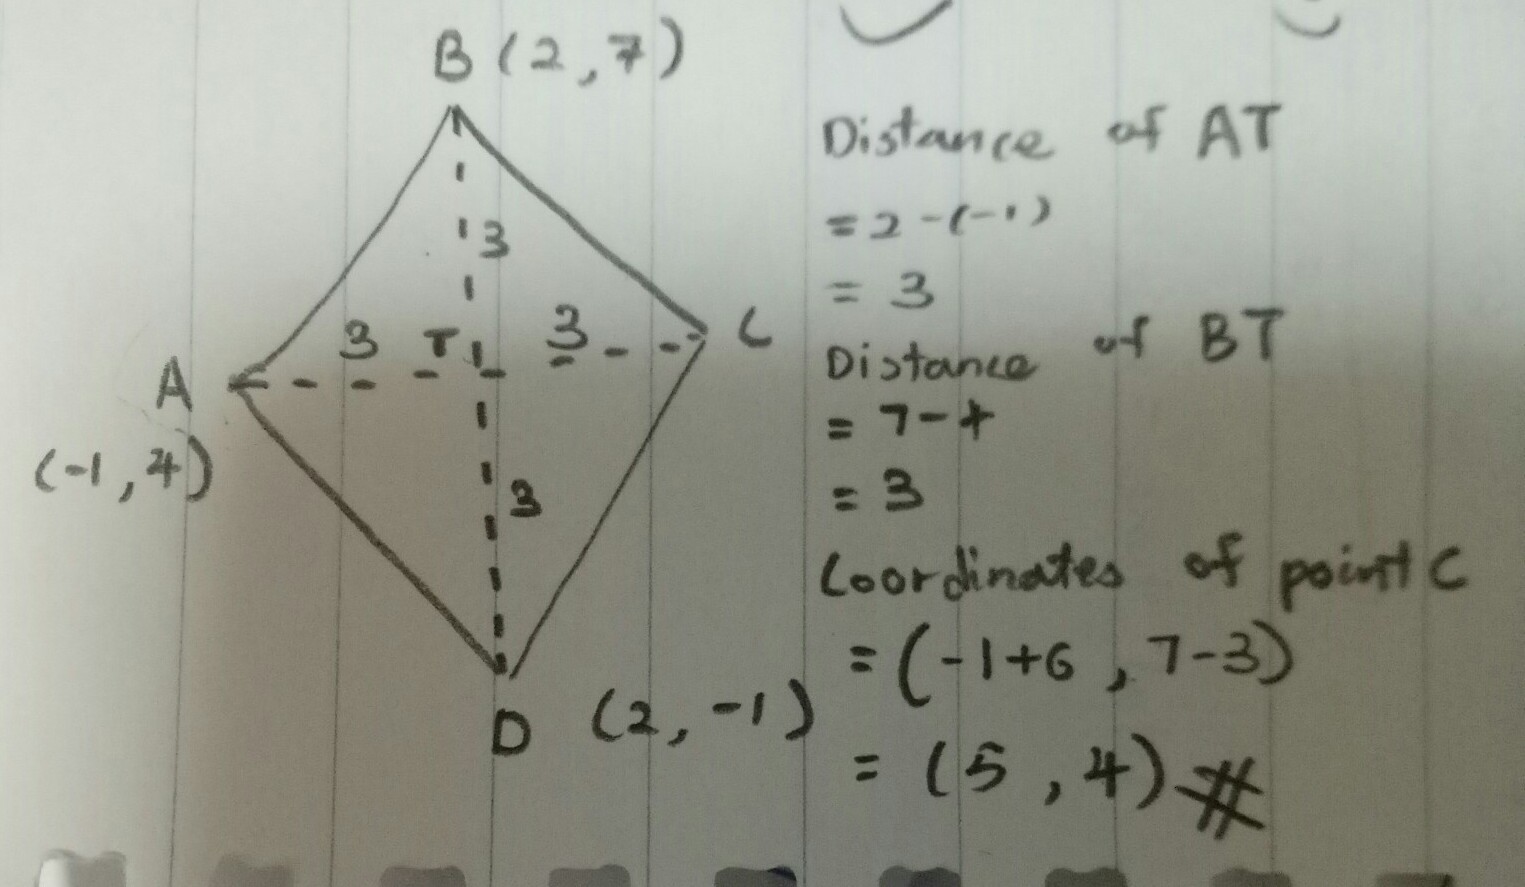 B (2,7)
3
3 T 3 C
A
(-1,4)
3
D (2,-1)
Distance of AT
=2-(-1)
= 3
Distance of BT
= 7-4
= 3
Coordinates of point C
=(-1+6,7-3)
= (5,4) #